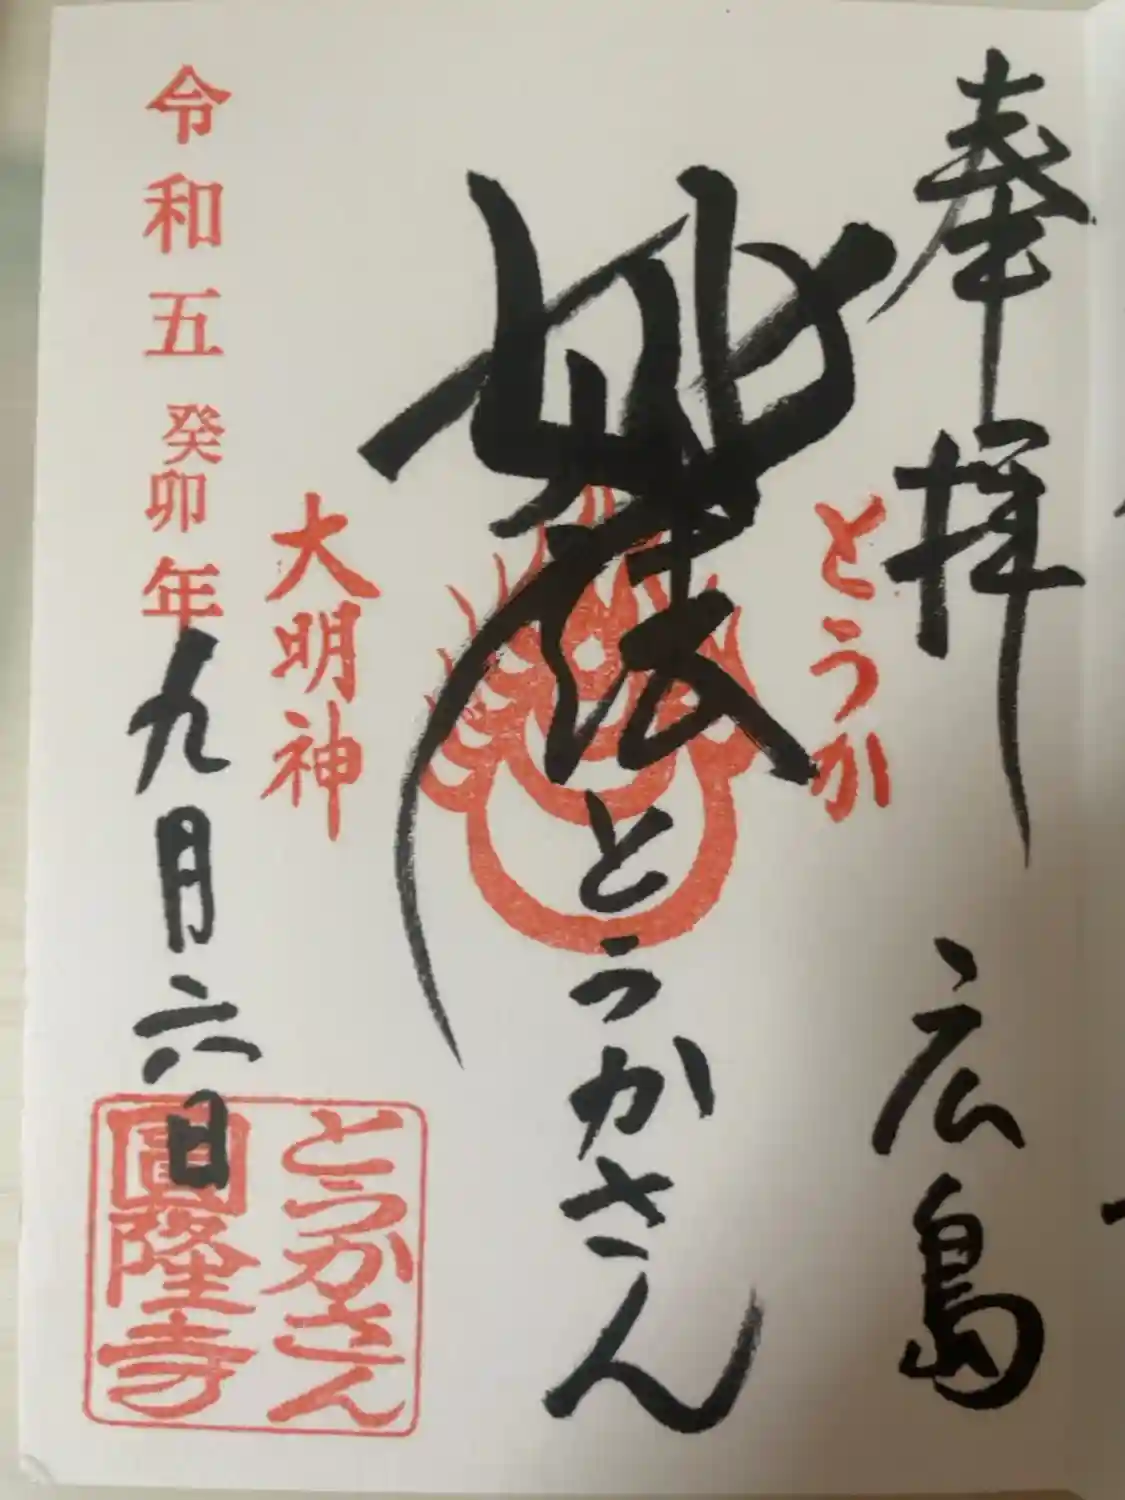 奉拝 広島
とうか
妙法
とうかさん
大明神
令和五癸卯年九月六日
とうかさん
圓隆寺